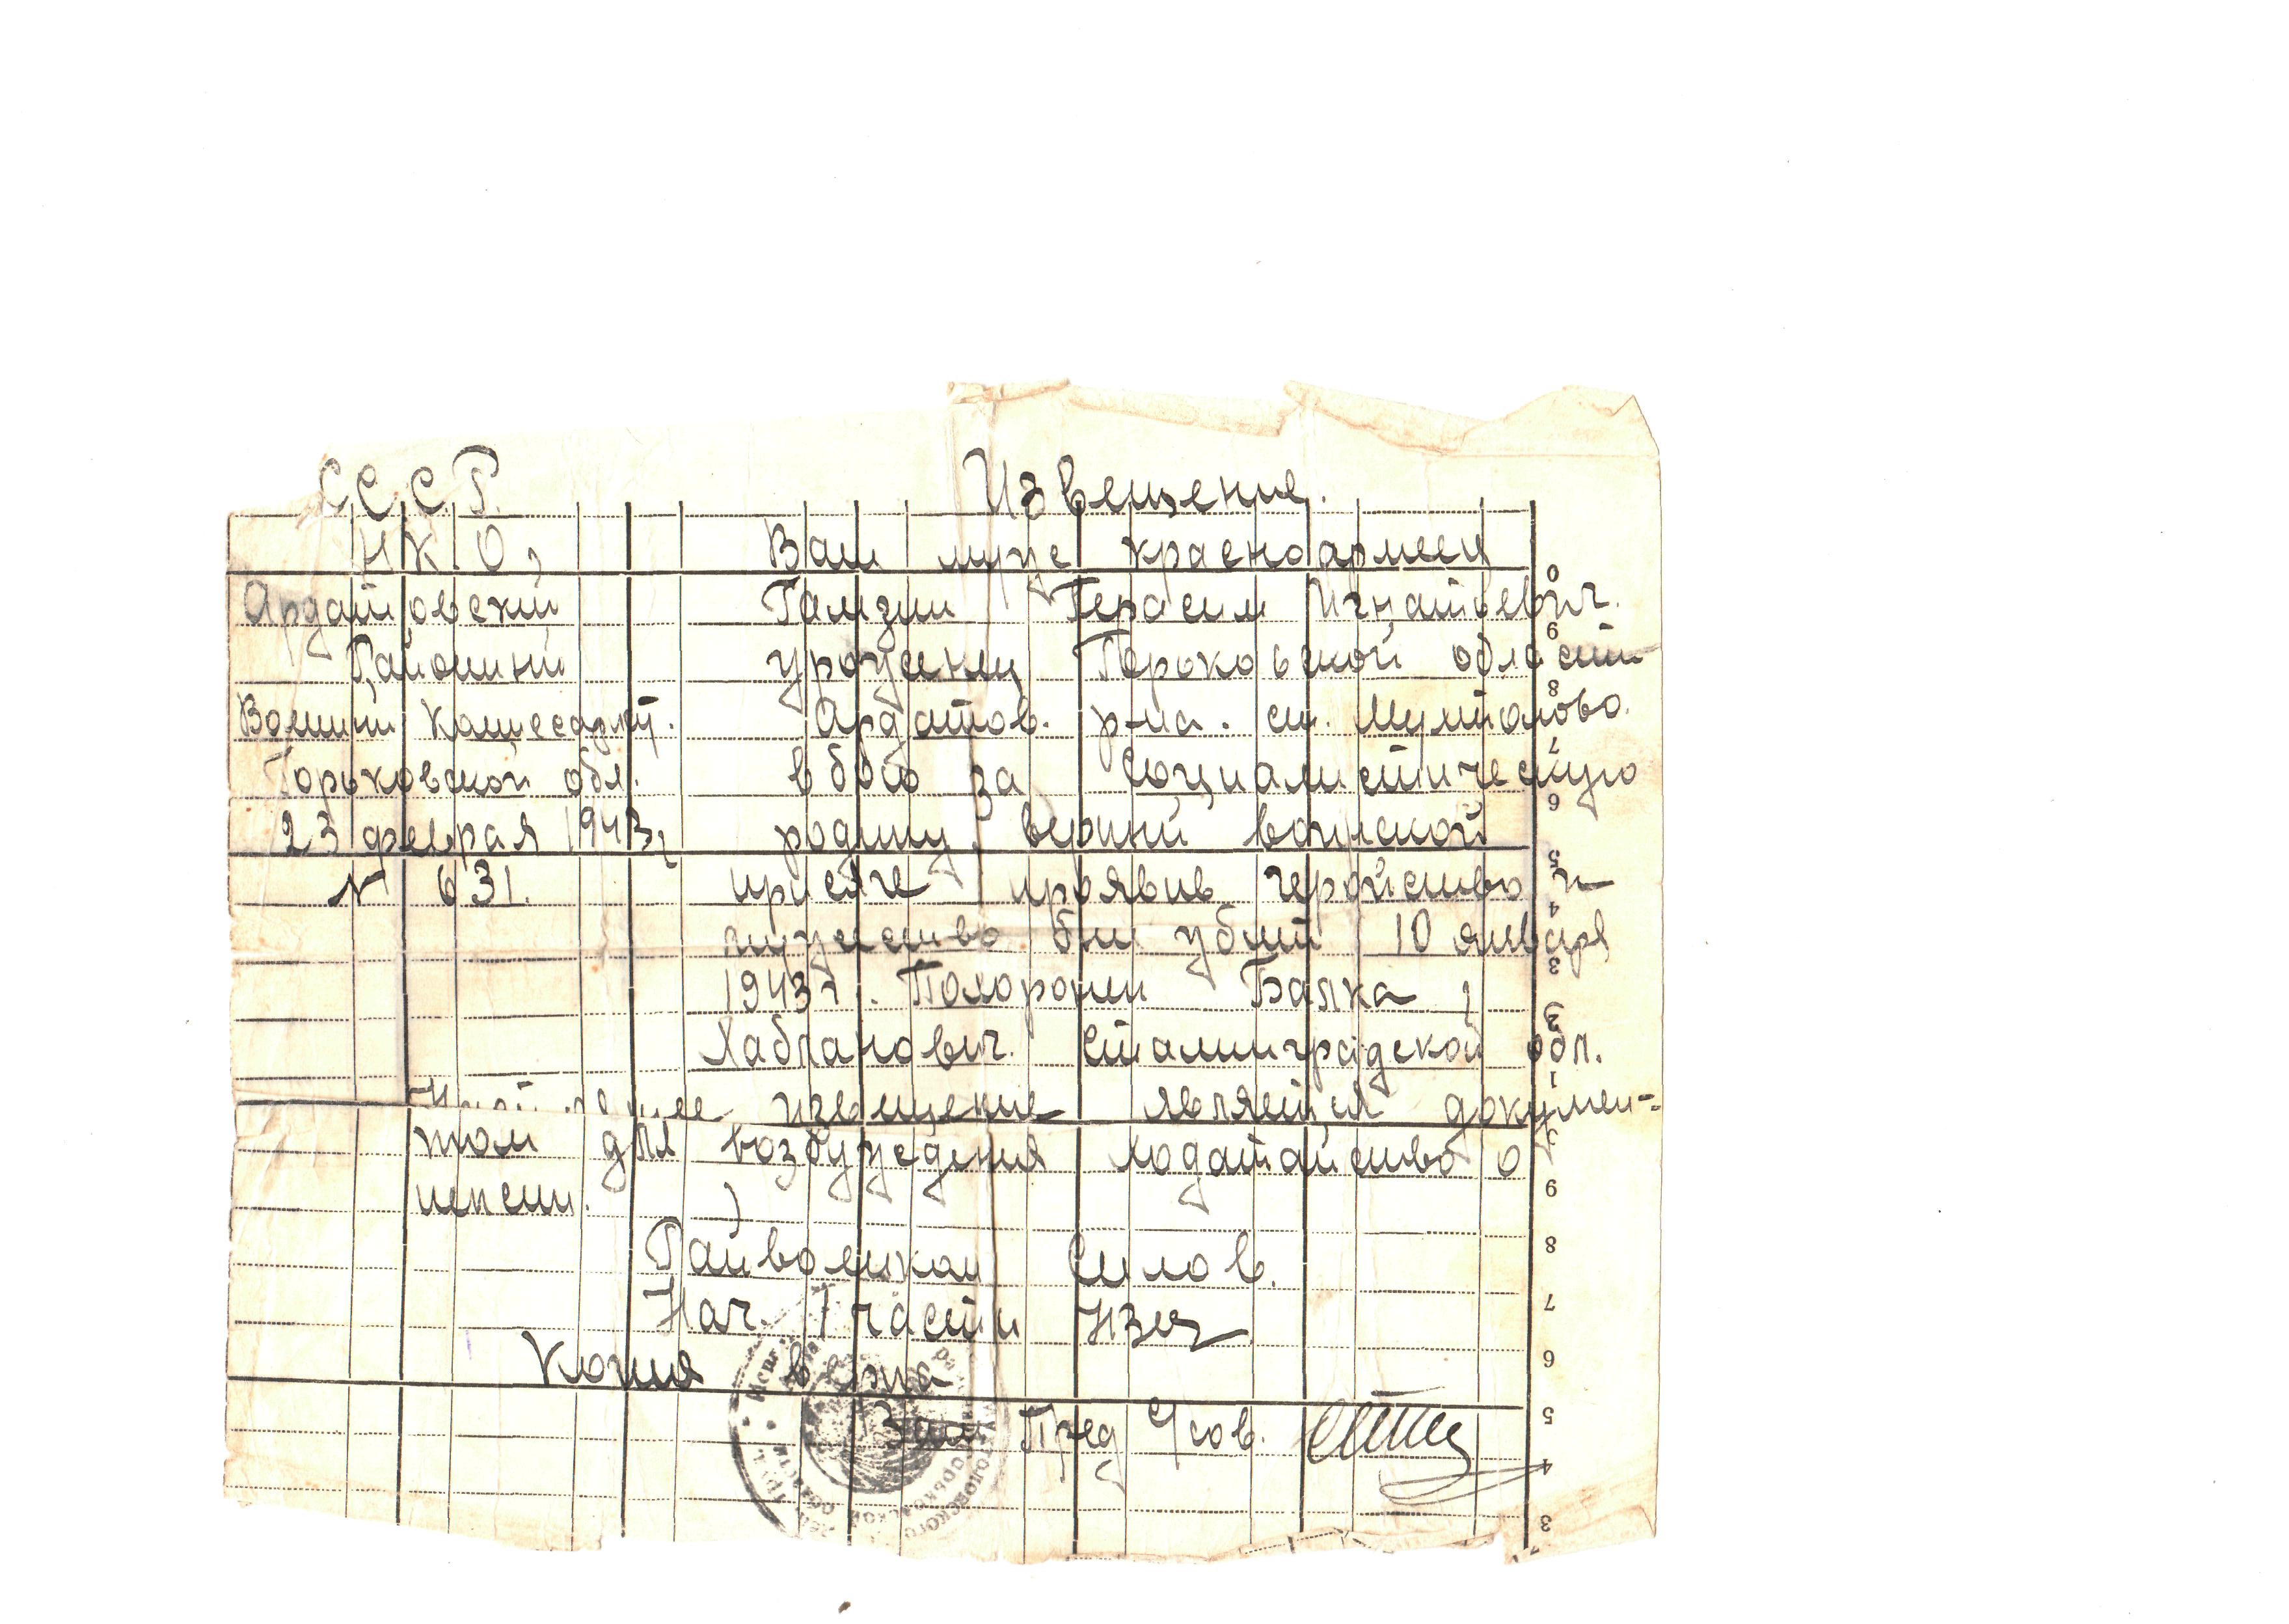 СССР.
Извещение.
НКО,
Ваш муж красноармеец
Ардатовский
Гамзин Герасим Игнатьевич.
Районный
уроженец Горьковской области
Военный Комиссариат.
Ардатов. р-на. ст. Мухтолово.
Горьковской обл.
в бою за социалистическую
23 феврая 1943 г
родину, верный воинской
N 631.
присяге проявив геройство и
мужество был убит 10 января
1943 г. Похоронен Балка
Сталинградской обл.
Настоящее извещение является докумен-
том для возбуждения ходатайство о
пенсии.
Райвоенком Силов.
Нач. 1 части
Копия верна
Зам Пред С/сов.